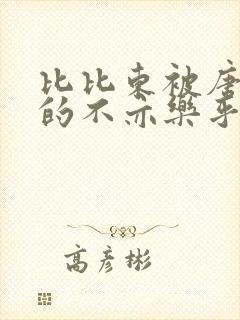 比比东被唐
的不亦樂乎
高彦彬